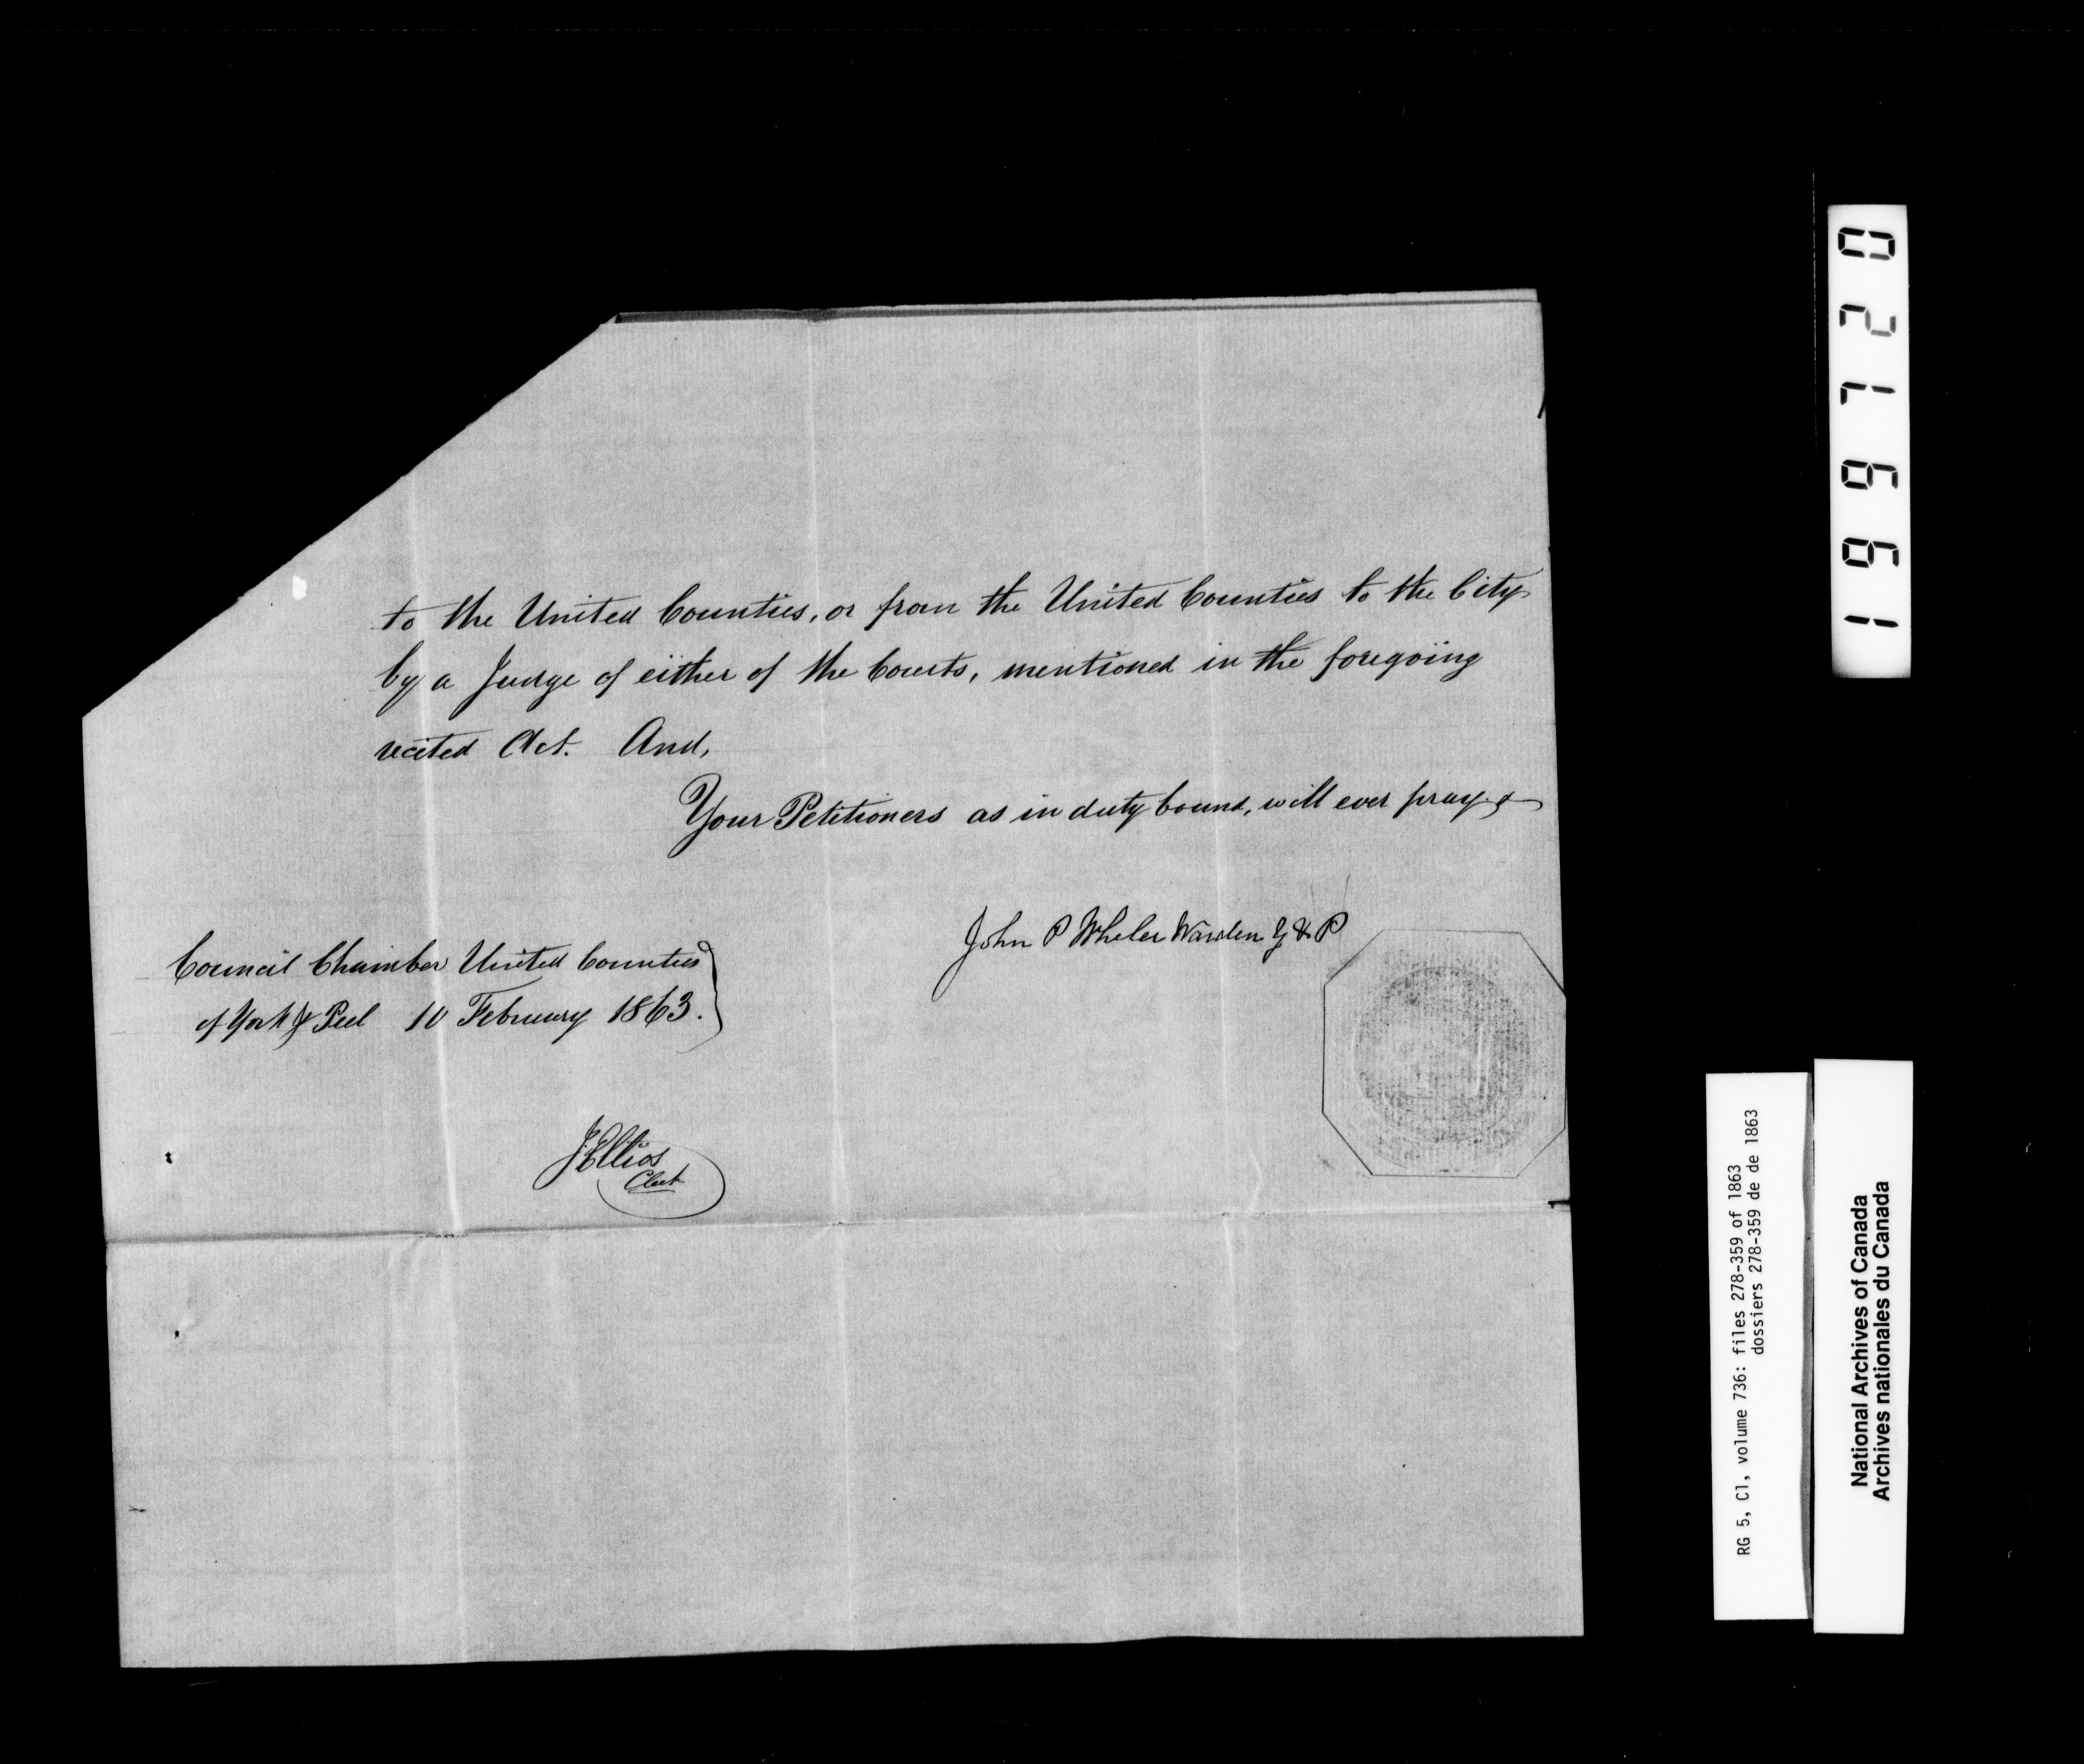 to the United Counties, or from the United Counties to the City
by a Judge of either of the Courts, mentioned in the foregoing
recited Act. And,
Your Petitioners as in duty bound, will ever pray &
John P Wheler Warden Y & P
Council Chamber United Counties
of York & Peel 10 February 1863.
J Elliot
Clerk
RG 5, C1, volume 736: files 278-359 of 1863
dossiers 278-359 de de 1863
National Archives of Canada
Archives nationales du Canada